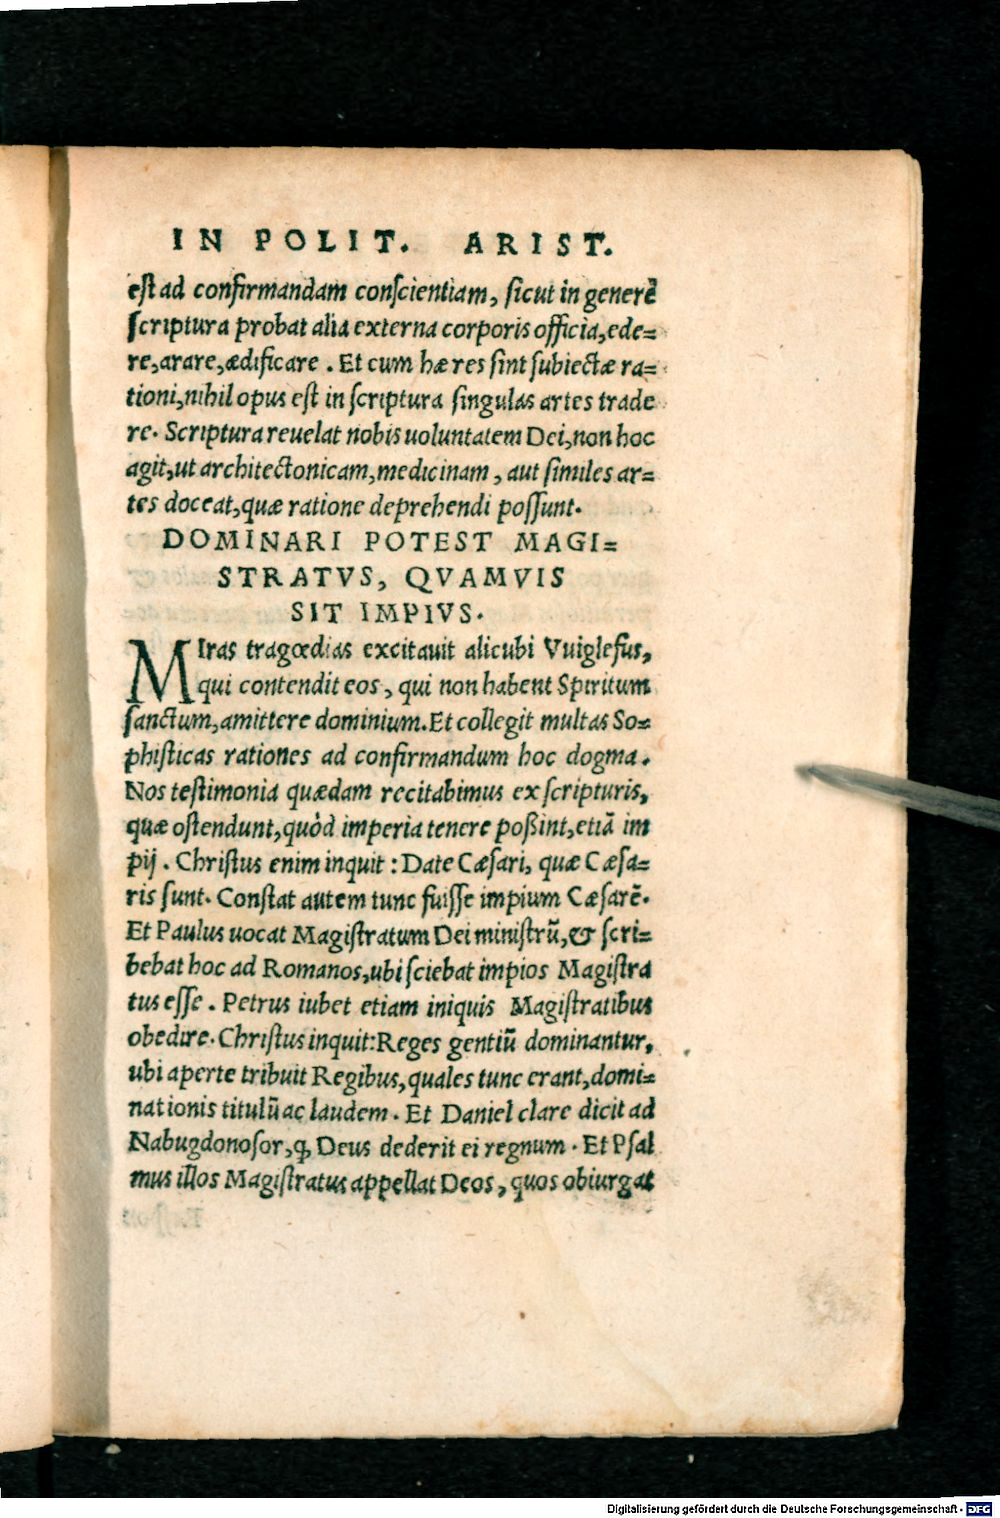 IN POLIT. ARIST.
est ad confirmandam conscientiam, sicut in generē
scriptura probat alia externa corporis officia, ede=
re, arare, ædificare. Et cum hæ res sint subiectæ ra=
tioni, nihil opus est in scriptura singulas artes trade
re. Scriptura reuelat nobis uoluntatem Dei, non hoc
agit, ut architectonicam, medicinam, aut similes ar=
tes doceat, quæ ratione deprehendi possunt.
DOMINARI POTEST MAGI=
STRATVS, QVAMVIS
SIT IMPIVS.
MIras tragœdias excitauit alicubi Vuiglefus,
qui contendit eos, qui non habent Spiritum
sanctum, amittere dominium. Et collegit multas So=
phisticas rationes ad confirmandum hoc dogma.
Nos testimonia quædam recitabimus ex scripturis,
quæ ostendunt, quòd imperia tenere poßint, etiā im
pij. Christus enim inquit: Date Cæsari, quæ Cæsa=
ris sunt. Constat autem tunc fuisse impium Cæsarē.
Et Paulus uocat Magistratum Dei ministrū, & scri=
bebat hoc ad Romanos, ubi sciebat impios Magistra
tus esse. Petrus iubet etiam iniquis Magistratibus
obedire. Christus inquit: Reges gentiū dominantur,
ubi aperte tribuit Regibus, quales tunc erant, domi=
nationis titulū ac laudem. Et Daniel clare dicit ad
Nabugdonosor, ꝙ Deus dederit ei regnum. Et Psal
mus illos Magistratus appellat Deos, quos obiurgat
Digitalisierung gefördert durch die Deutsche Forschungsgemeinschaft - DFG